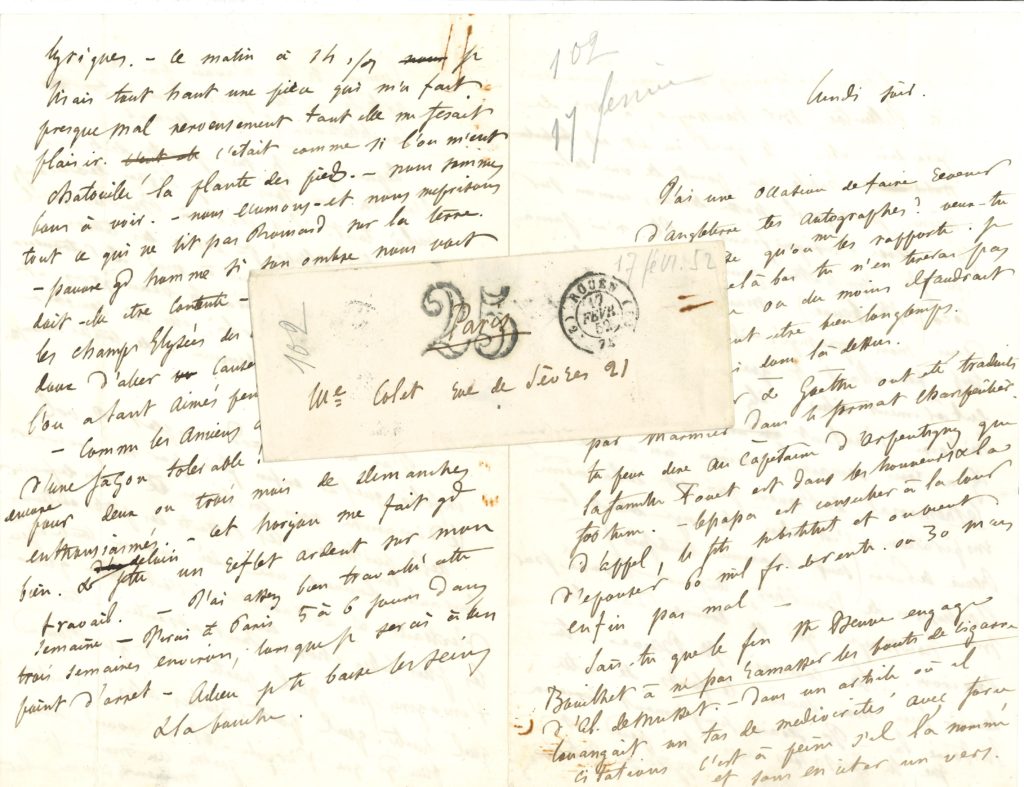 lyriques. – Ce matin à
lisais tout haut une pièce qui m'a fait
presque mal nerveusement tant elle me fesait
plaisir. c'était comme si l'on m'eut
chatouillé la plante des pieds. – nous sommes
bons à voir. – nous écumons – et nous méprisons
tout ce qui ne lit pas Ronsard sur la terre.
– pauvre gd homme si son ombre nous voit
doit-elle être contente –
les champs Elysées des
donc d'aller causer
l'on a tant aimés pen
– Comme les anciens
d'une façon tolérable!
encore
pour deux ou trois mois de dimanches
enthousiasmés. – cet horizon me fait gd
bien. & de loin jette un reflet ardent sur mon
travail. – J'ai assez bien travaillé cette
semaine – J'irai à Paris 5 à 6 jours dans
trois semaines environ, lorsque je serai à un
point d'arrêt – Adieu je te baise les seins
& la bouche.
102
17 févr. 52
25
Paris
ROUEN
17
FEVR.
52
Me Colet rue de Sèvres 21
102
17 février
Lundi soir.
J'ai une occasion de faire revenir
d'Angleterre tes autographes? veux-tu
qu'on me les rapporte. je
là bas tu n'en tireras pas
ou du moins il faudrait
être bien longtemps.
donc là dessus.
de Goethe ont été traduits
par Marmier dans le format Charpentier.
tu peux dire au Capitaine d'Arpentigny que
la famille est dans les honneurs & la
– le papa est conseiller à la cour
d'appel, le fils substitut et au
d'épouser 60 mil fr. de rente. ou 30 mais
enfin pas mal –
Sais-tu que le fin Ste Beuve engage
Bouilhet à ne pas ramasser les bouts de cigares
d'Alf. de Musset. – Dans un article où il
louangeait un tas de médiocrités avec force
citations c'est à peine s'il l'a nommé
et sans en citer un vers.